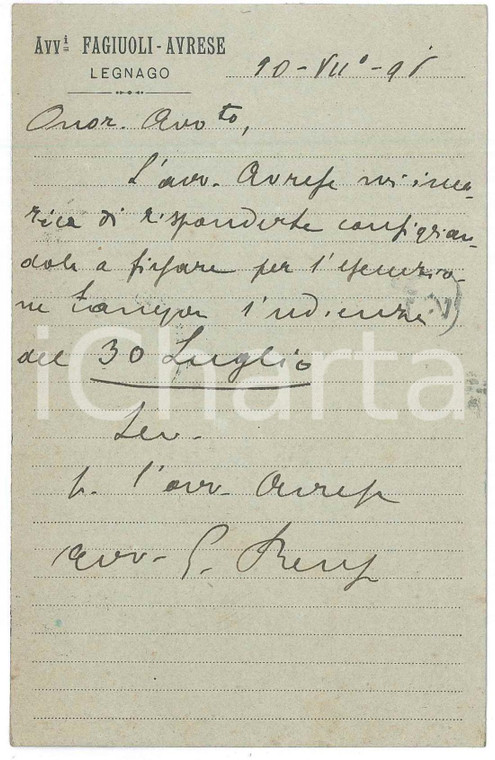 Avv.i FAGIUOLI - AVRESE
LEGNAGO
10 - VII° - 98
Onor. Avv.to,
L'avv. Avrese mi inca-
rica di risponderle
dole a fissare per l'esecuzio-
ne l'udienza
del 30 Luglio
iCharta
p. l'avv. Avrese
avv. G.